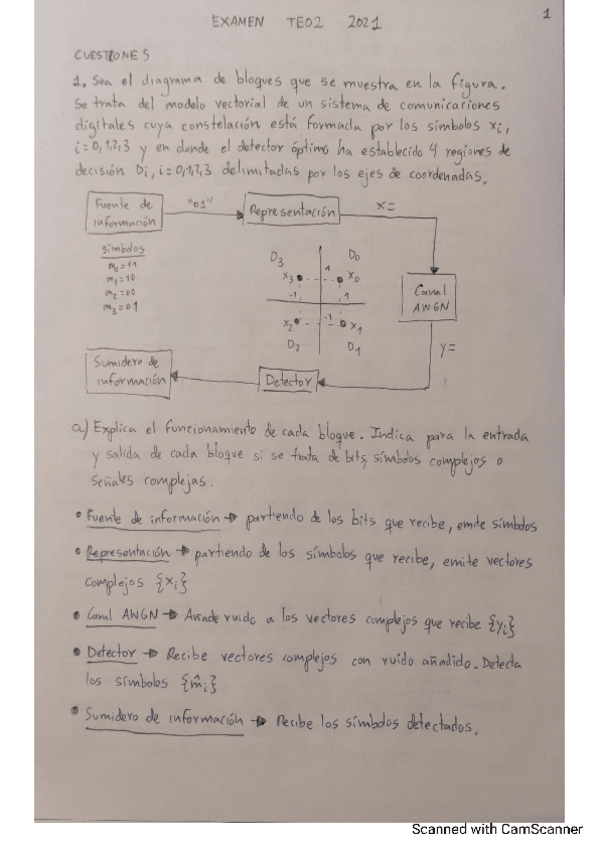 1
EXAMEN TEO2 2021
CUESTIONES
1. Sea el diagrama de bloques que se muestra en la figura.
Se trata del modelo vectorial de un sistema de comunicaciones
digitales cuya constelación está formada por los símbolos xi,
i=0,1,2,3 y en donde el detector óptimo ha establecido 4 regiones de
decisión Di, i=0,1,2,3 delimitadas por los ejes de coordenadas.
Fuente de
información
"01"
Representación
x=
símbolos
m0=11
m1=10
m2=00
m3=01
D3
D0
x3
1
x0
-1
1
x2
-1
x1
D2
D1
Canal
AWGN
y=
Sumidero de
información
Detector
a) Explica el funcionamiento de cada bloque. Indica para la entrada
y salida de cada bloque si se trata de bits, símbolos complejos o
señales complejas.
• Fuente de información → partiendo de los bits que recibe, emite símbolos
• Representación → partiendo de los símbolos que recibe, emite vectores
complejos {xi}
• Canal AWGN → Añade ruido a los vectores complejos que recibe {yi}
• Detector → Recibe vectores complejos con ruido añadido. Detecta
los símbolos {m̂i}
• Sumidero de información → Recibe los símbolos detectados.
Scanned with CamScanner